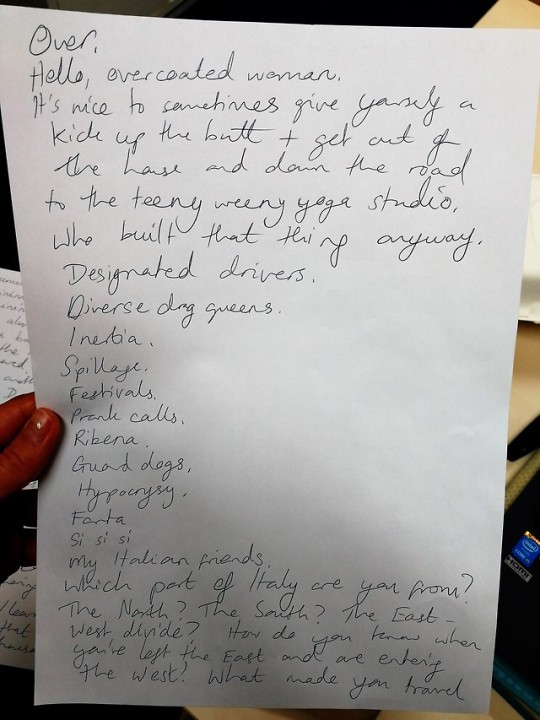 Over.
Hello, overcoated woman.
It's nice to sometimes give yourself a
kick up the butt + get out of
the house and down the road
to the teeny weeny yoga studio.
Who built that thing anyway.
Designated drivers.
Diverse drag queens.
Inertia.
Spillage.
Festivals.
Prank calls.
Ribena.
Guard dogs.
Hypocrysy.
Fanta
Si si si
My Italian friends.
Which part of Italy are you from?
The North? The South? The East-
West divide? How do you know when
you've left the East and are entering
the West? What made you travel
intel